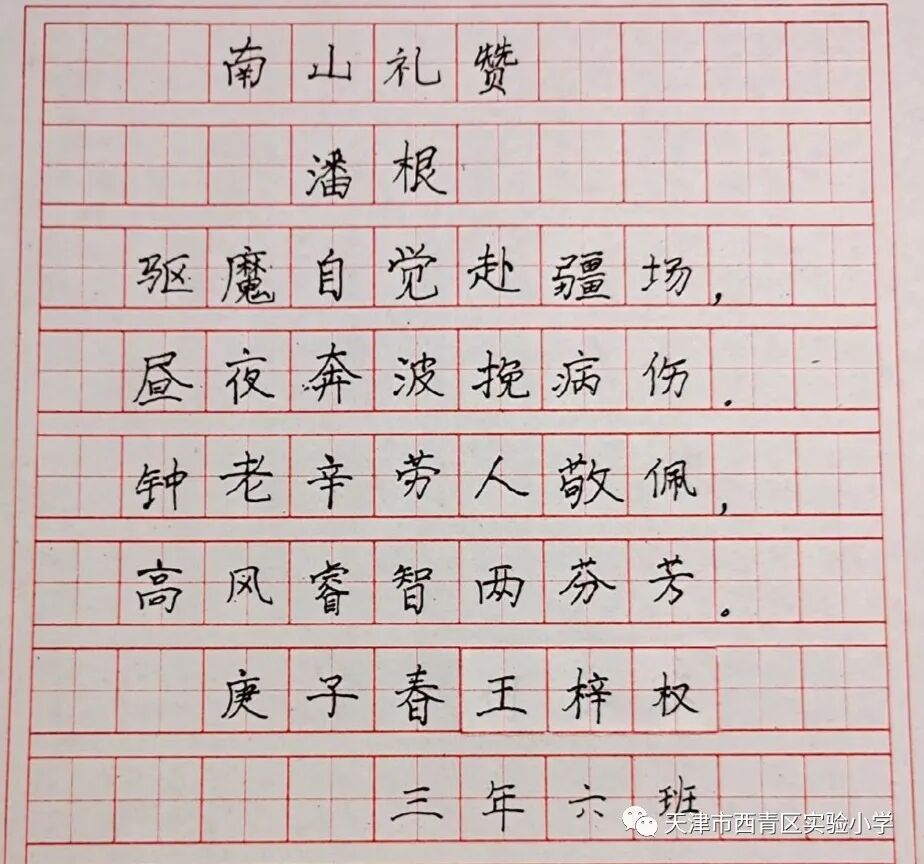 南山礼赞
潘根
驱魔自觉赴疆场，
昼夜奔波挽病伤。
钟老辛劳人敬佩，
高风睿智两芬芳。
庚子春王梓权
三年六班
天津市西青区实验小学